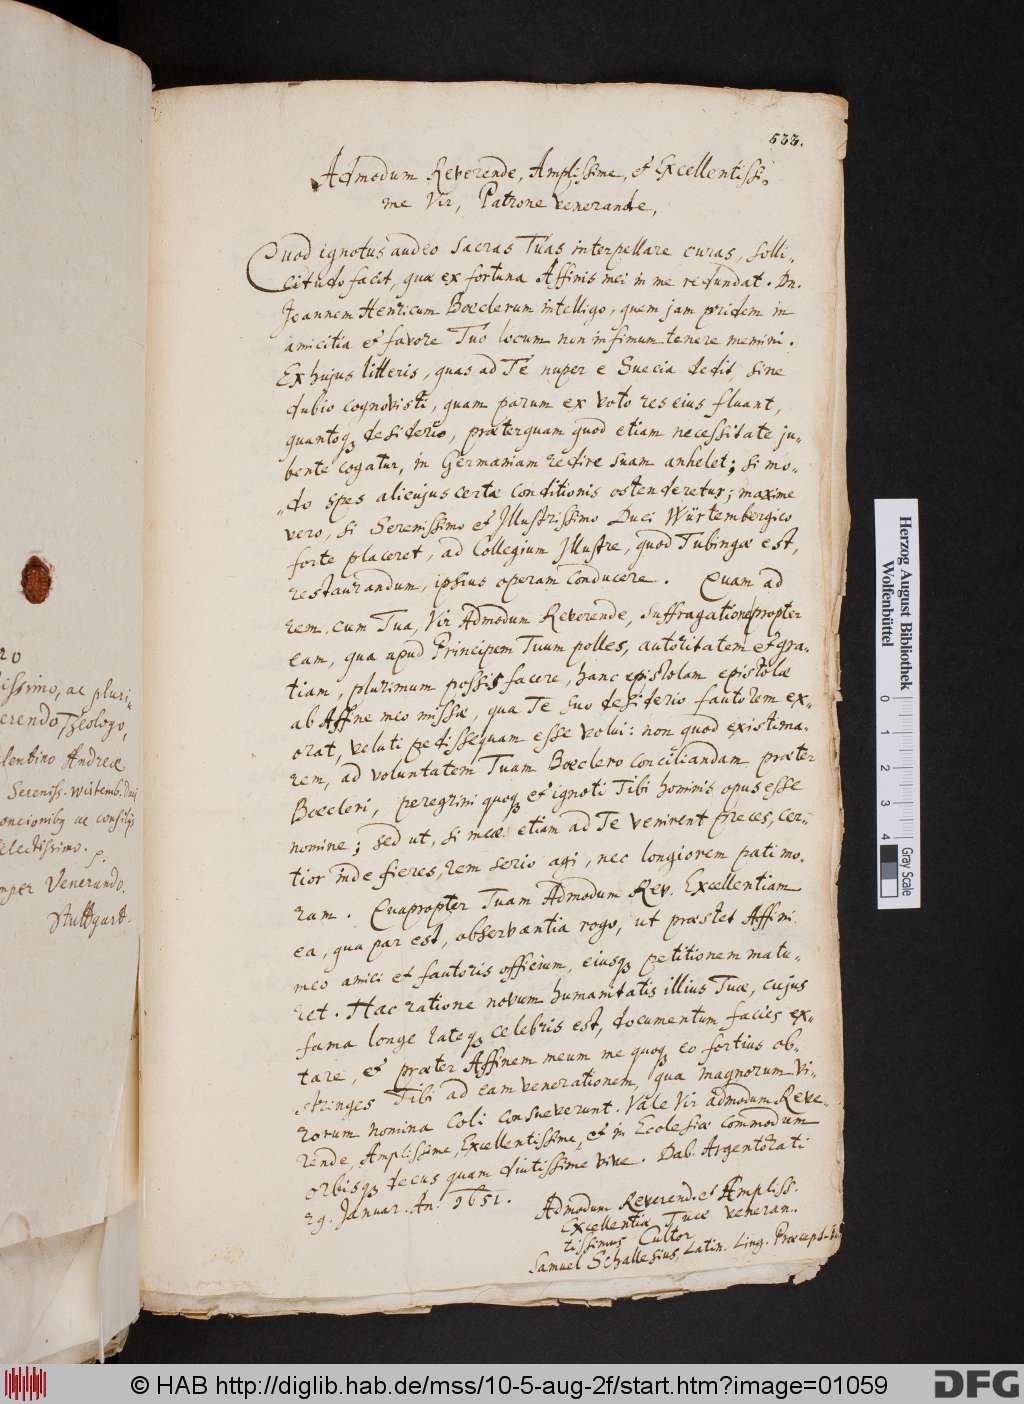 533.
Admodum Reverende, Amplissime, et Excellentissi-
me Vir, Patrone venerande,
Quod ignotus audeo sacras Tuas interpellare curas, solli-
citudo facit, quæ ex fortuna Affinis mei in me redundat. Dn.
Joannem Henricum Bœclerum intelligo, quem jam pridem in
amicitia et favore Tuo locum non infimum tenere memini.
Ex hujus litteris, quas ad Te nuper e Suecia dedit, sine
dubio cognovisti, quam parum ex voto res eius fluant,
quantoq3 desiderio, præterquam quod etiam necessitate ju-
bente cogatur, in Germaniam redire suam anhelet; si mo-
do spes alicujus certæ conditionis ostenderetur; maxime
vero, si Serenissimo et Illustrissimo Duci Würtembergico
forte placeret, ad Collegium Illustre, quod Tubingæ est,
restaurandum, ipsius operam conducere. Quam ad
rem, cum Tua, Vir Admodum Reverende, suffragatione propter
eam, qua apud Principem Tuum polles, autoritatem et gra-
tiam, plurimum possis facere, hanc epistolam epistolæ
ab Affine meo missæ, qua Te suo desiderio fautorem ex-
orat, veluti pedissequam esse volui: non quod existima-
rem, ad voluntatem Tuam Bœclero conciliandam præter
Bœcleri, peregrini quoq3 et ignoti Tibi hominis opus esse
nomine; sed ut, si meæ etiam ad Te venirent preces, cer-
tior inde fieres, rem serio agi, nec longiorem pati mo-
ram. Quapropter Tuam Admodum Rev. Excellentiam
ea, qua par est, observantia rogo, ut præstet Affini
meo amici et fautoris officium, eiusq3 petitionem matu-
ret. Hac ratione novum humanitatis illius Tuæ, cujus
fama longe lateq3 celebris est, documentum facies ex-
tare, et præter Affinem meum me quoq3 eo fortius ob-
stringes Tibi ad eam venerationem, qua magnorum Vi-
rorum nomina coli consueverunt. Vale Vir admodum Reve-
rende, Amplissime, Excellentissime, et in Ecclesiæ commodum
orbisq3 decus quam diutissime vive. Dab. Argentorati
29. Januar. An. 1651.
Admodum Reverend. et Ampliss.
Excellentiæ Tuæ veneran-
tissimus Cultor
Samuel Schallesius, Latin. Ling. Præcept.
issimo, ac pluri-
erendo Theologo,
lentino Andreæ
Sereniss. Wirtemb. Duci
oncionib9 ac consiliis
electissimo.
mper Venerando.
Stuttgart.
Herzog August Bibliothek
Wolfenbüttel
0 1 2 3 4 Gray Scale
© HAB http://diglib.hab.de/mss/10-5-aug-2f/start.htm?image=01059
DFG